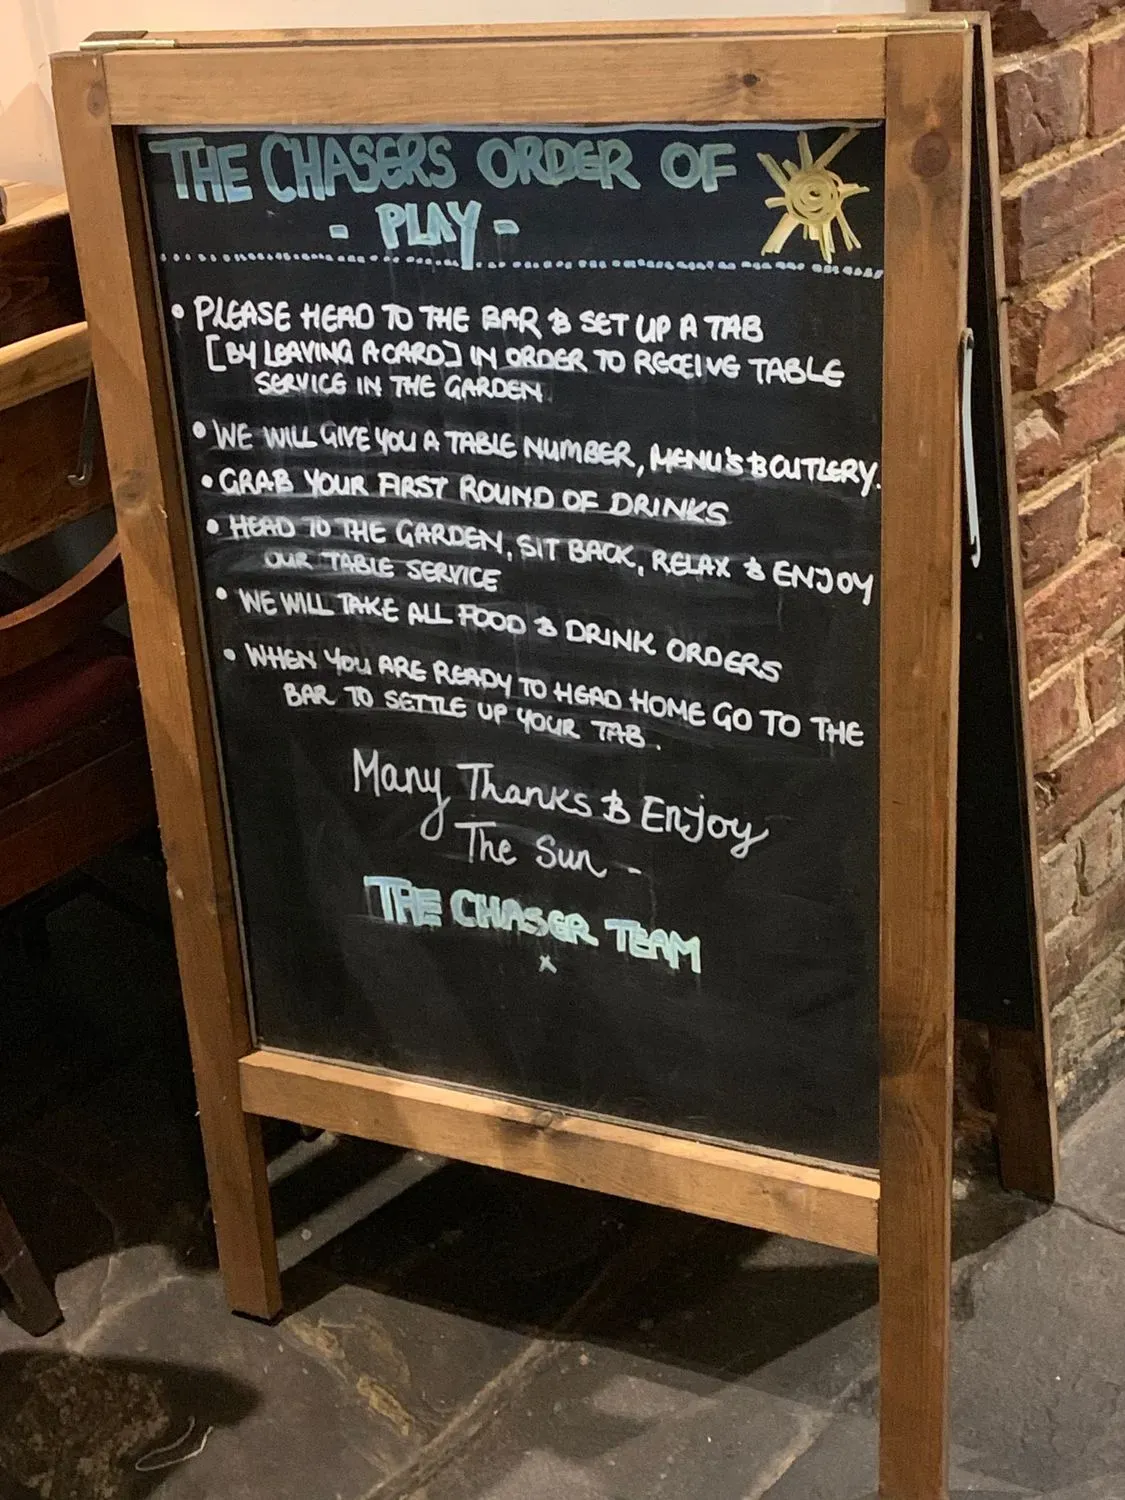 THE CHASERS ORDER OF
- PLAY -
• PLEASE HEAD TO THE BAR & SET UP A TAB
[BY LEAVING A CARD] IN ORDER TO RECEIVE TABLE
SERVICE IN THE GARDEN.
• WE WILL GIVE YOU A TABLE NUMBER, MENU'S & CUTLERY.
• GRAB YOUR FIRST ROUND OF DRINKS
• HEAD TO THE GARDEN, SIT BACK, RELAX & ENJOY
OUR TABLE SERVICE
• WE WILL TAKE ALL FOOD & DRINK ORDERS
• WHEN YOU ARE READY TO HEAD HOME GO TO THE
BAR TO SETTLE UP YOUR TAB.
Many Thanks & Enjoy
The Sun -
THE CHASER TEAM
x